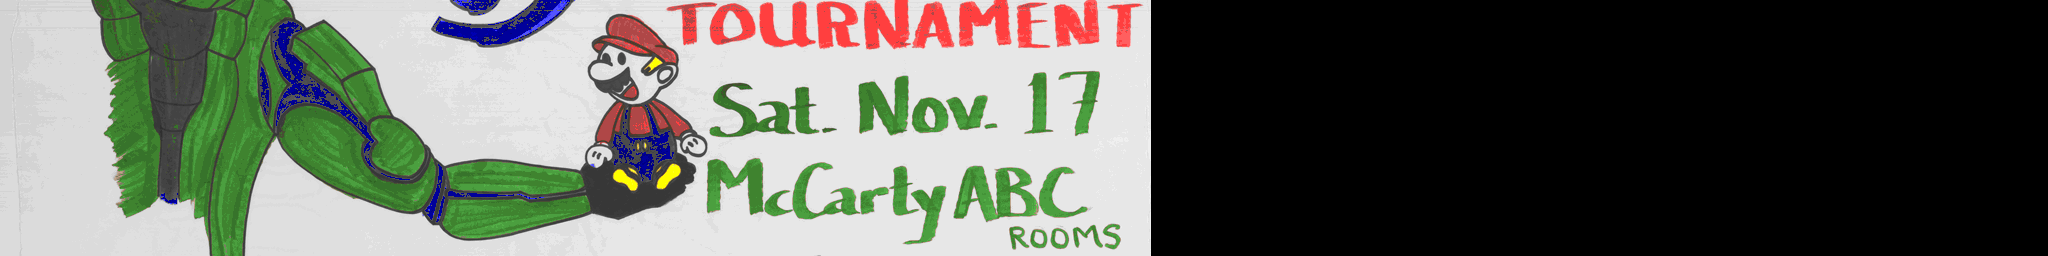 TOURNAMENT
Sat. Nov. 17
McCarty ABC
ROOMS